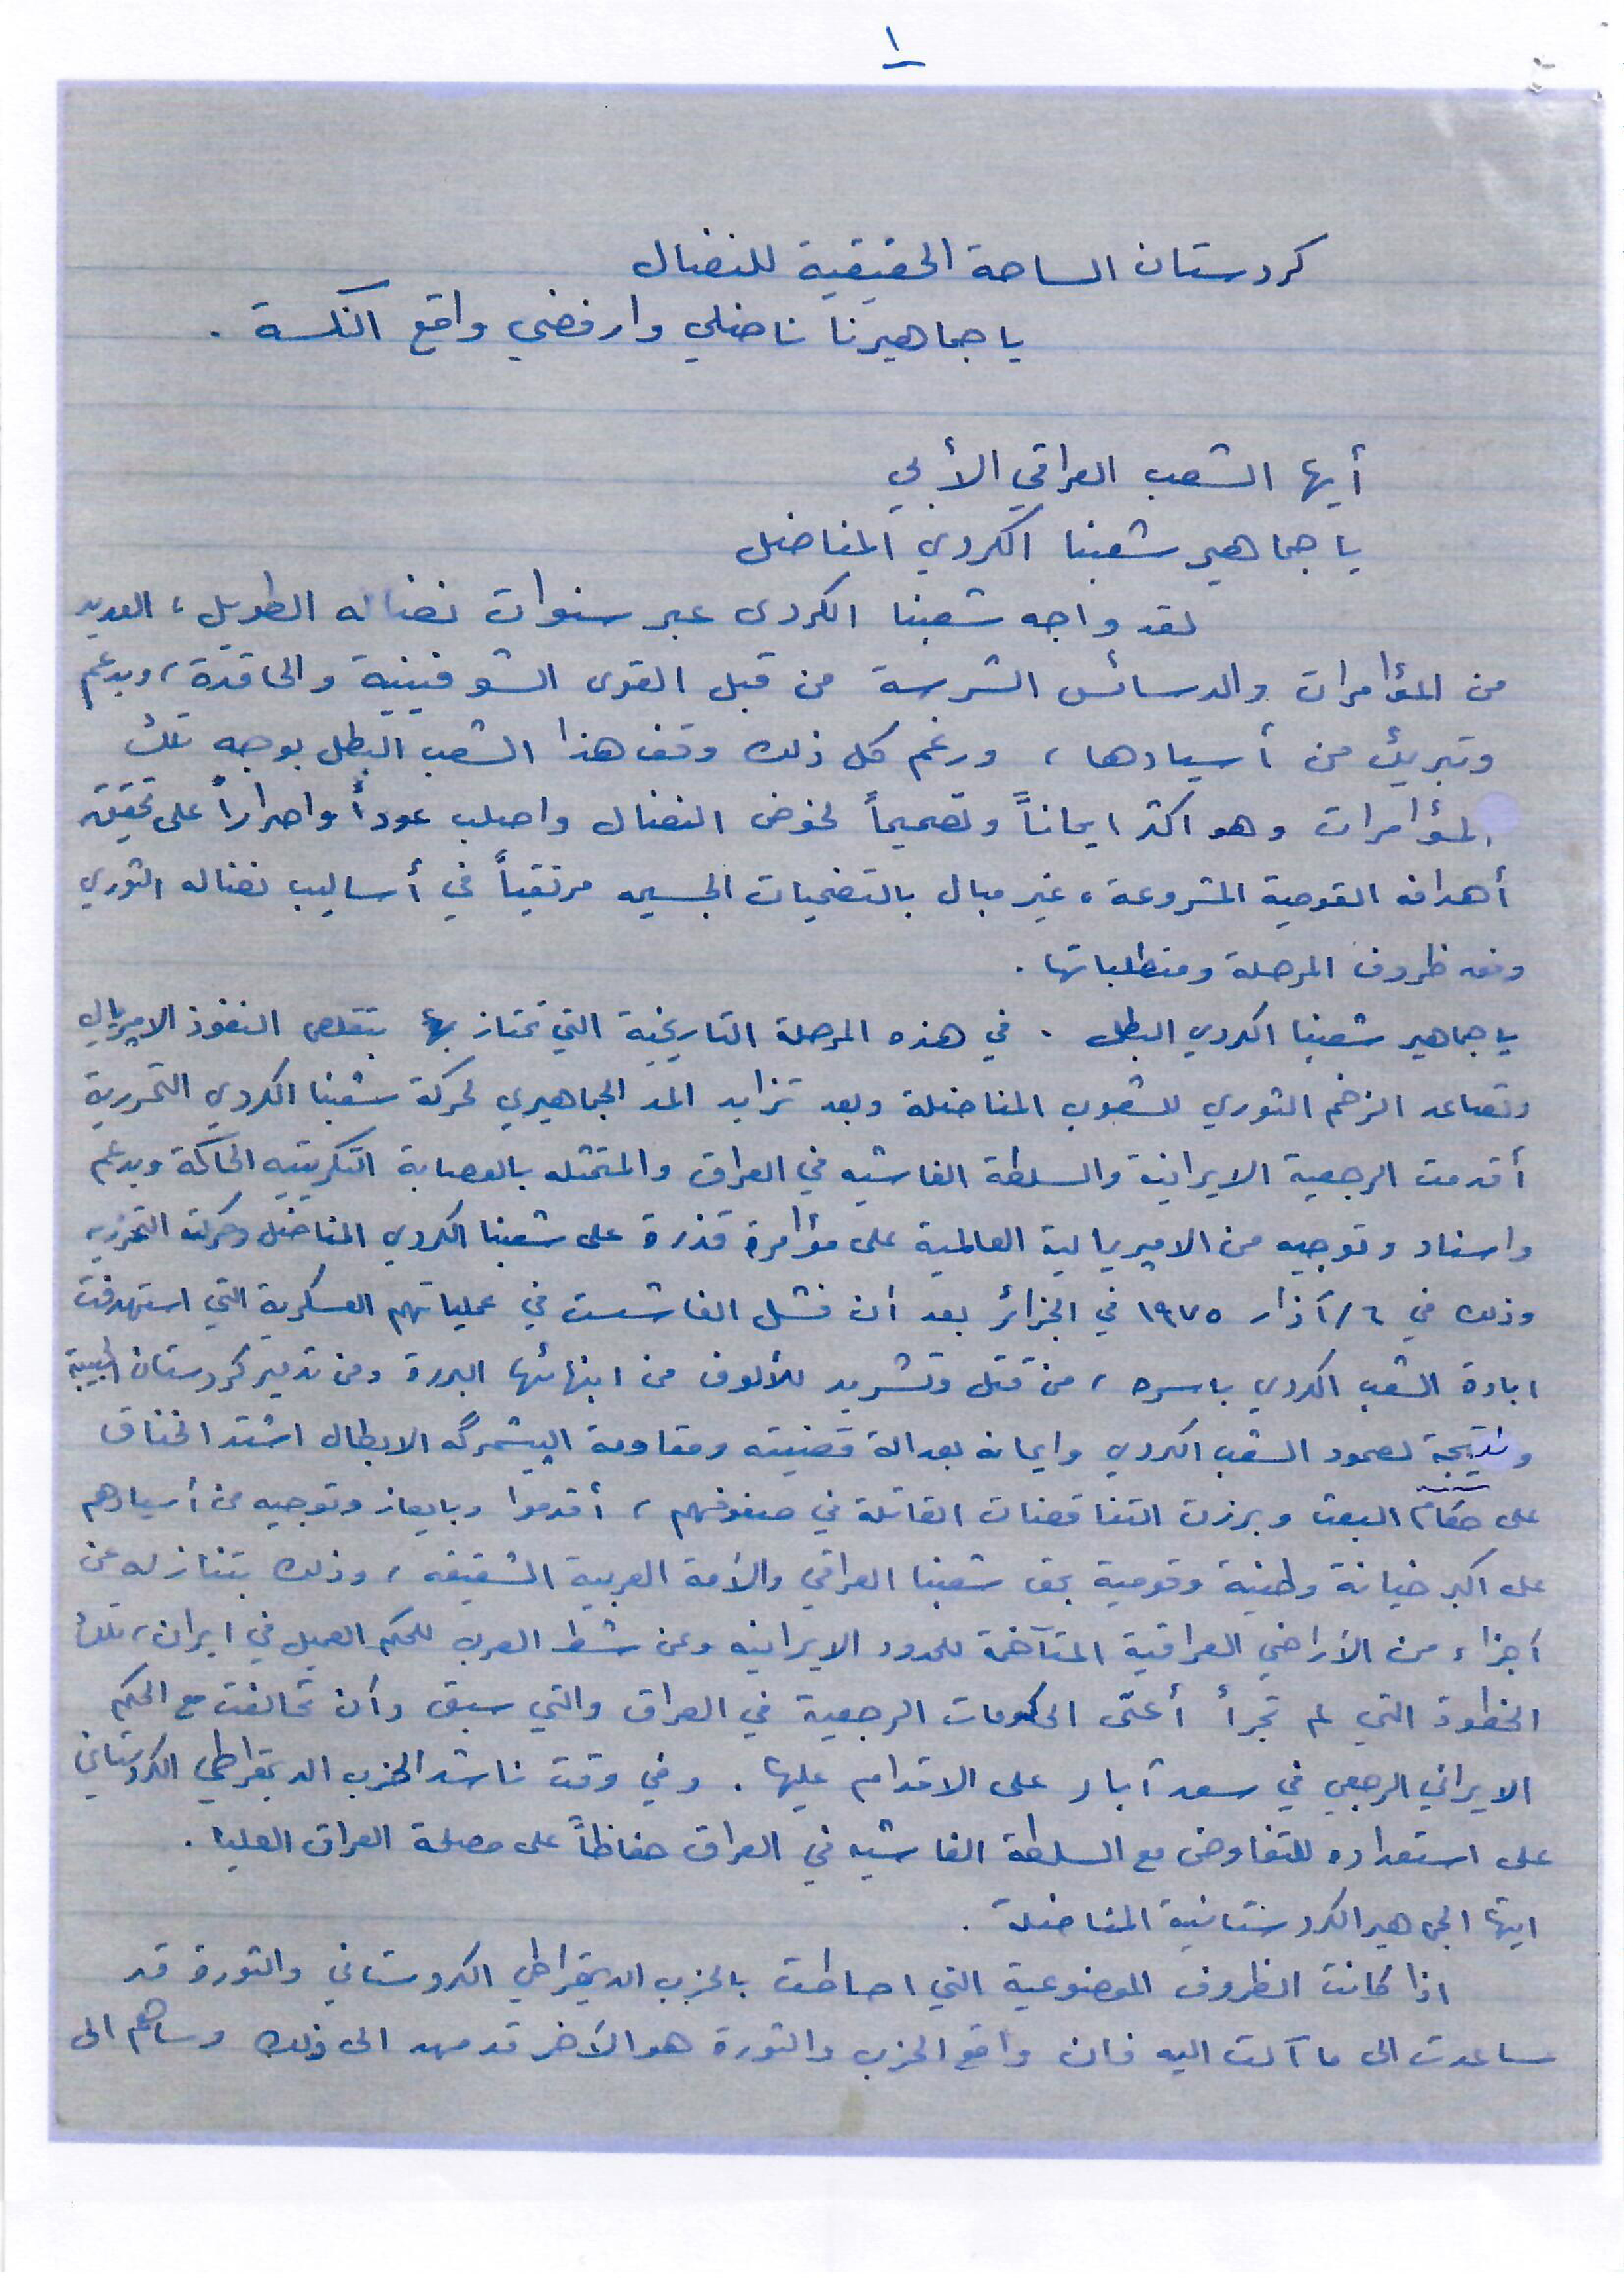 ١
كردستان الساحة الحقيقية للنضال
يا جماهيرنا ناضلي وارفضي واقع النكسة .
أيها الشعب العراقي الأبي
يا جماهير شعبنا الكردي المناضل
لقد واجه شعبنا الكردى عبر سنوات نضاله الطويل ، العديد
من المؤامرات والدسائس الشرسة من قبل القوى الشوفينية والحاقدة ، وبدعم
وتبريك من أسيادها ، ورغم كل ذلك وقف هذا الشعب البطل بوجه تلك
المؤامرات وهو اكثر ايماناً وتصميماً لخوض النضال واصلب عوداً واصراراً على تحقيق
أهدافه القومية المشروعة ، غير مبال بالتضحيات الجسيمه مرتقياً في أساليب نضاله الثوري
وفق ظروف المرحلة ومتطلباتها .
يا جماهير شعبنا الكردي البطل . في هذه المرحلة التاريخية التي تمتاز بتقلص النفوذ الامبريالي
وتصاعد الزخم الثوري للشعوب المناضلة وبعد تزايد المد الجماهيري لحركة شعبنا الكردي التحررية
أقدمت الرجعية الايرانية والسلطة الفاشيه في العراق والمتمثله بالعصابة التكريتيه الحاكمة وبدعم
واسناد وتوجيه من الامبريالية العالمية على مؤامرة قذرة على شعبنا الكردي المناضل وحركته التحرريه
وذلك في ٦/آذار ١٩٧٥ في الجزائر بعد أن فشل الفاشست في عملياتهم العسكرية التي استهدفت
ابادة الشعب الكردي باسره ، من قتل وتشريد للألوف من ابنائها البررة ومن تدمير كردستان الحبيبة
ونتيجة لصمود الشعب الكردي وايمانه بعدالة قضيته ومقاومة الپيشمرگه الابطال اشتد الخناق
على حكام البعث وبرزت التناقضات القاتلة في صفوفهم ، أقدموا وبايعاز وتوجيه من أسيادهم
على اكبر خيانة وطنية وقومية بحق شعبنا العراقي والأمة العربية الشقيقه ، وذلك بتنازله عن
أجزاء من الأراضي العراقية المتآخمة للحدود الايرانيه وعن شط العرب للحكم العميل في ايران ، تلك
الخطوة التي لم تجرأ أعتى الحكومات الرجعية في العراق والتي سبق وأن تحالفت مع الحكم
الايراني الرجعي في سعد آباد على الاقدام عليها . وفي وقت ناشد الحزب الديمقراطي الكردستاني
على استعداده للتفاوض مع السلطة الفاشيه في العراق حفاظاً على مصلحة العراق العليا .
ايتها الجماهير الكردستانية المناضلة .
اذا كانت الظروف الموضوعية التي احاطت بالحزب الديمقراطي الكردستاني والثورة قد
ساعدت الى ما آلت اليه فان واقع الحزب والثورة هو الآخر قد مهد الى ذلك وساهم الى